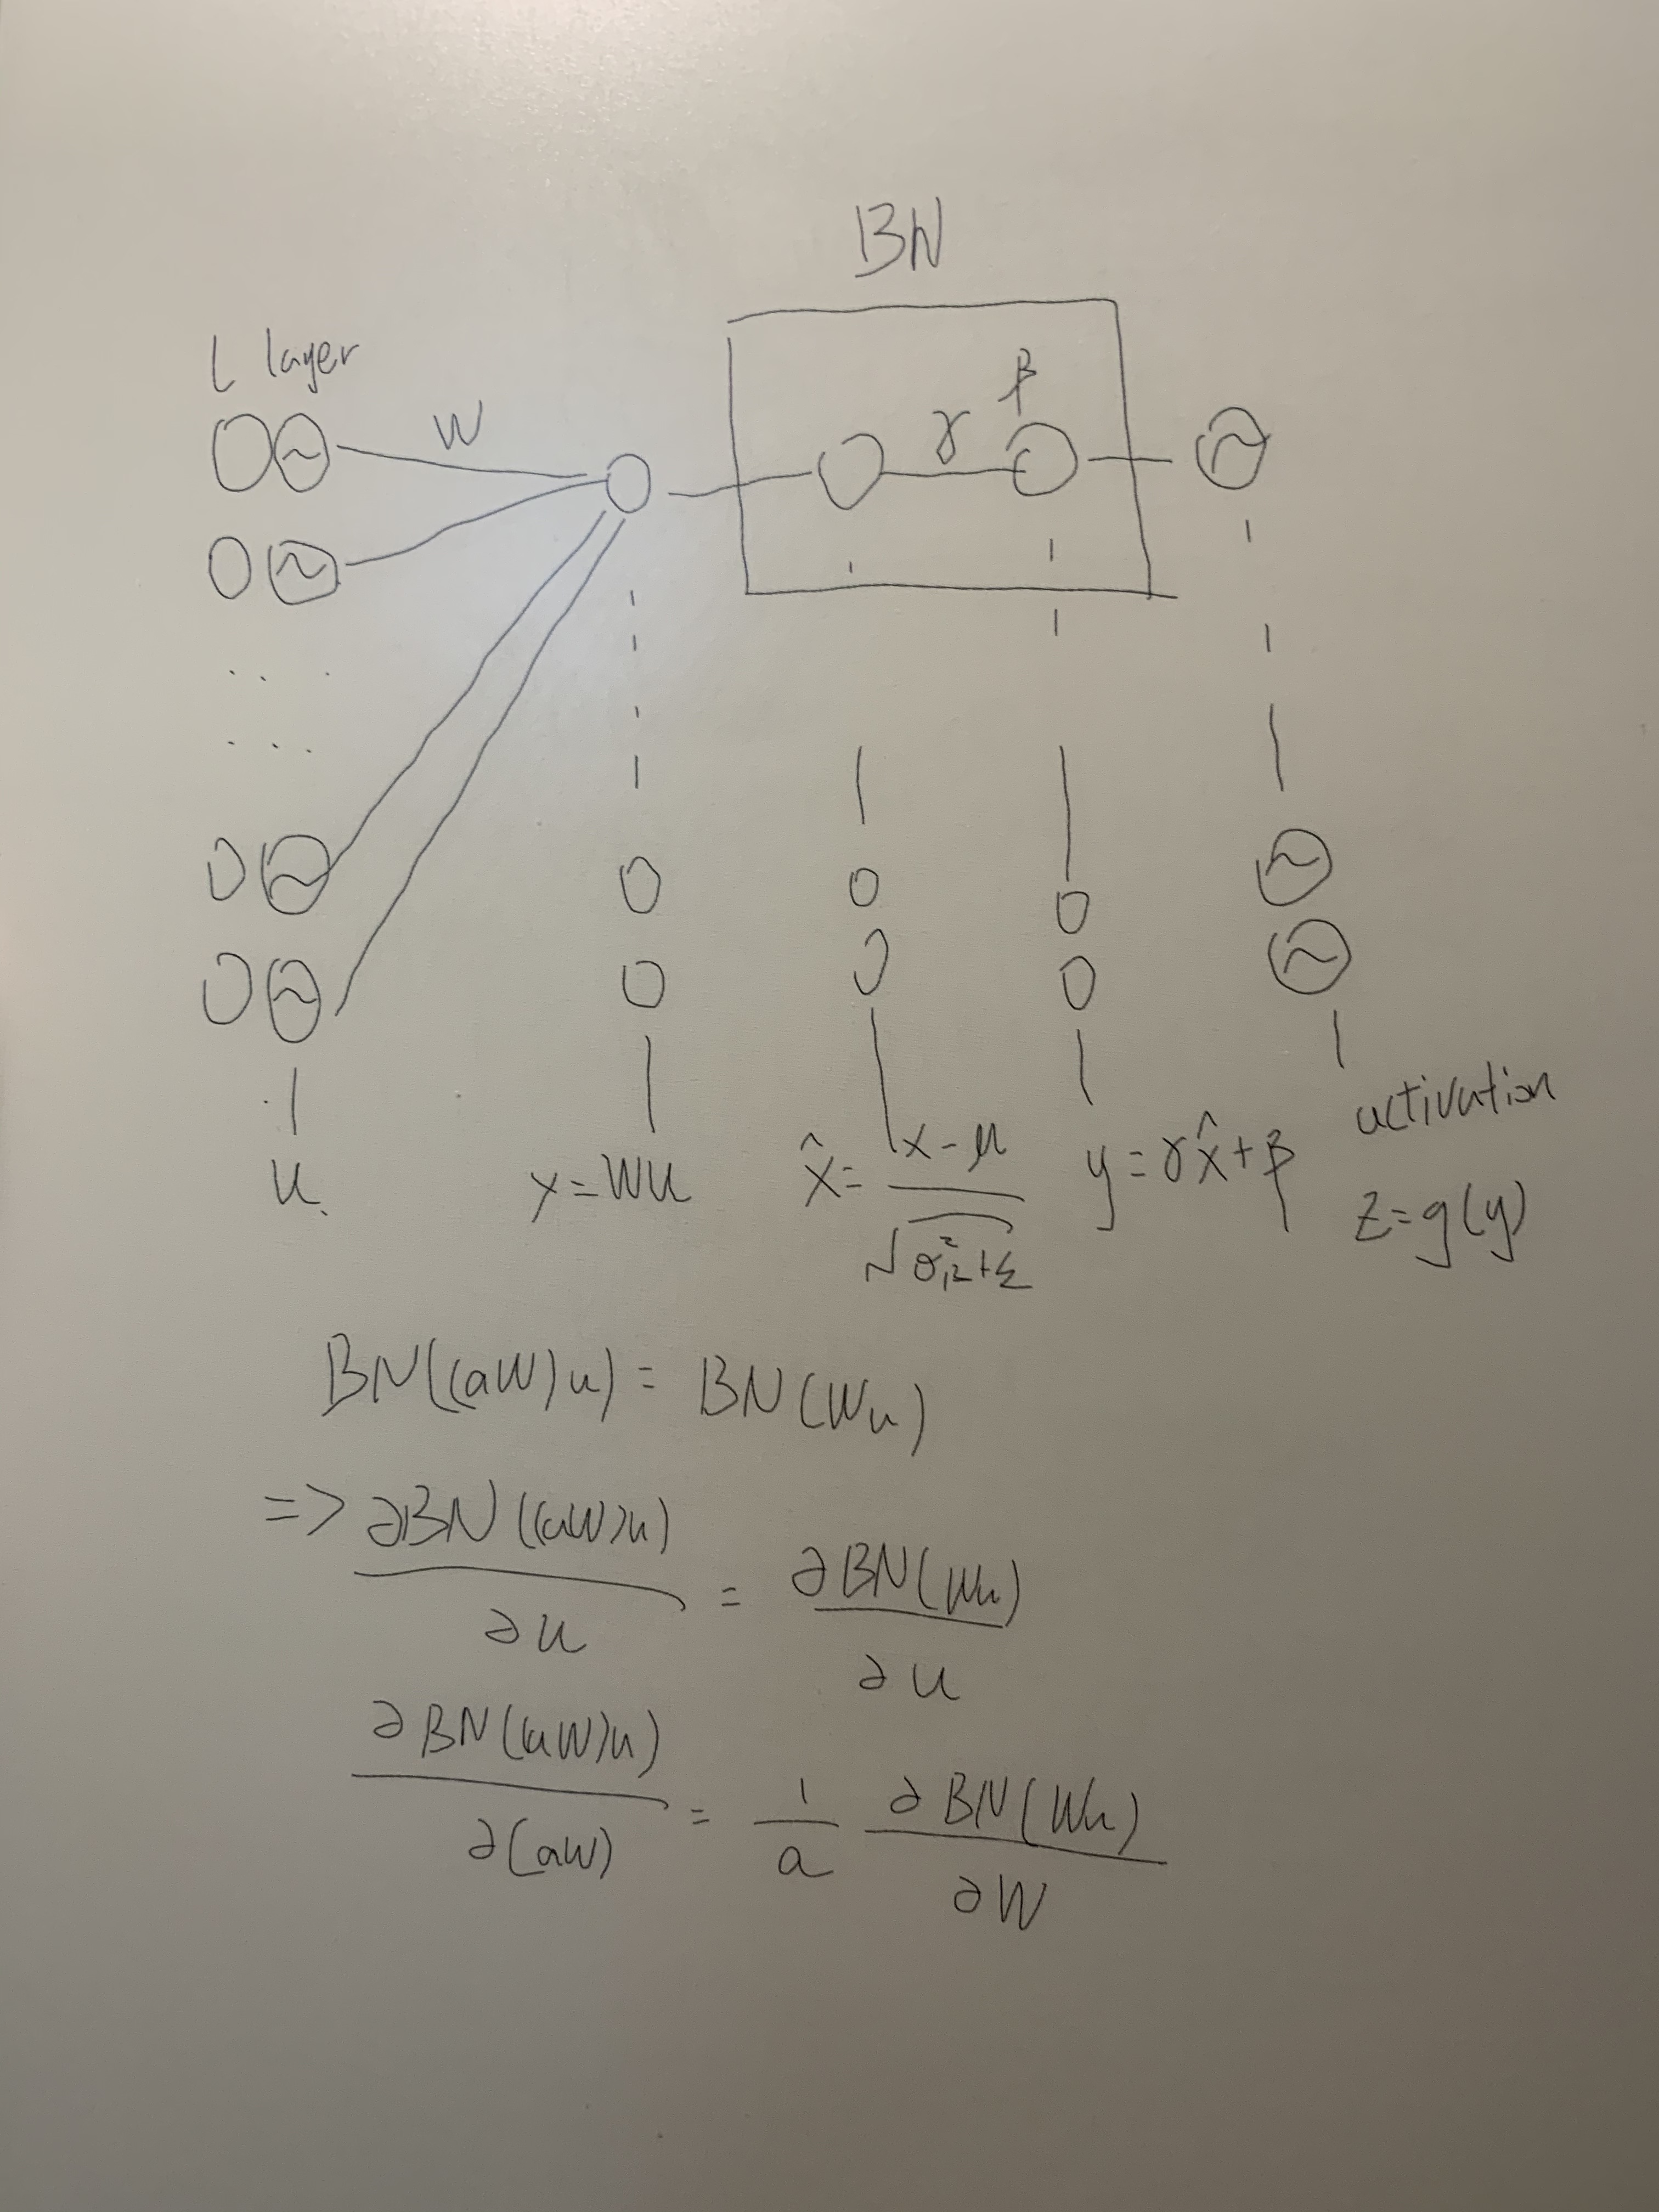 BN
L layer
W
γ
β
u
x=Wu
x̂= x-μ / √σ²_B+ε
y=γx̂+β
activation
z=g(y)
BN((aW)u) = BN(Wu)
=> ∂BN((aW)u) / ∂u = ∂BN(Wu) / ∂u
∂BN(aW)u) / ∂(aW) = 1/a ∂BN(Wu) / ∂W